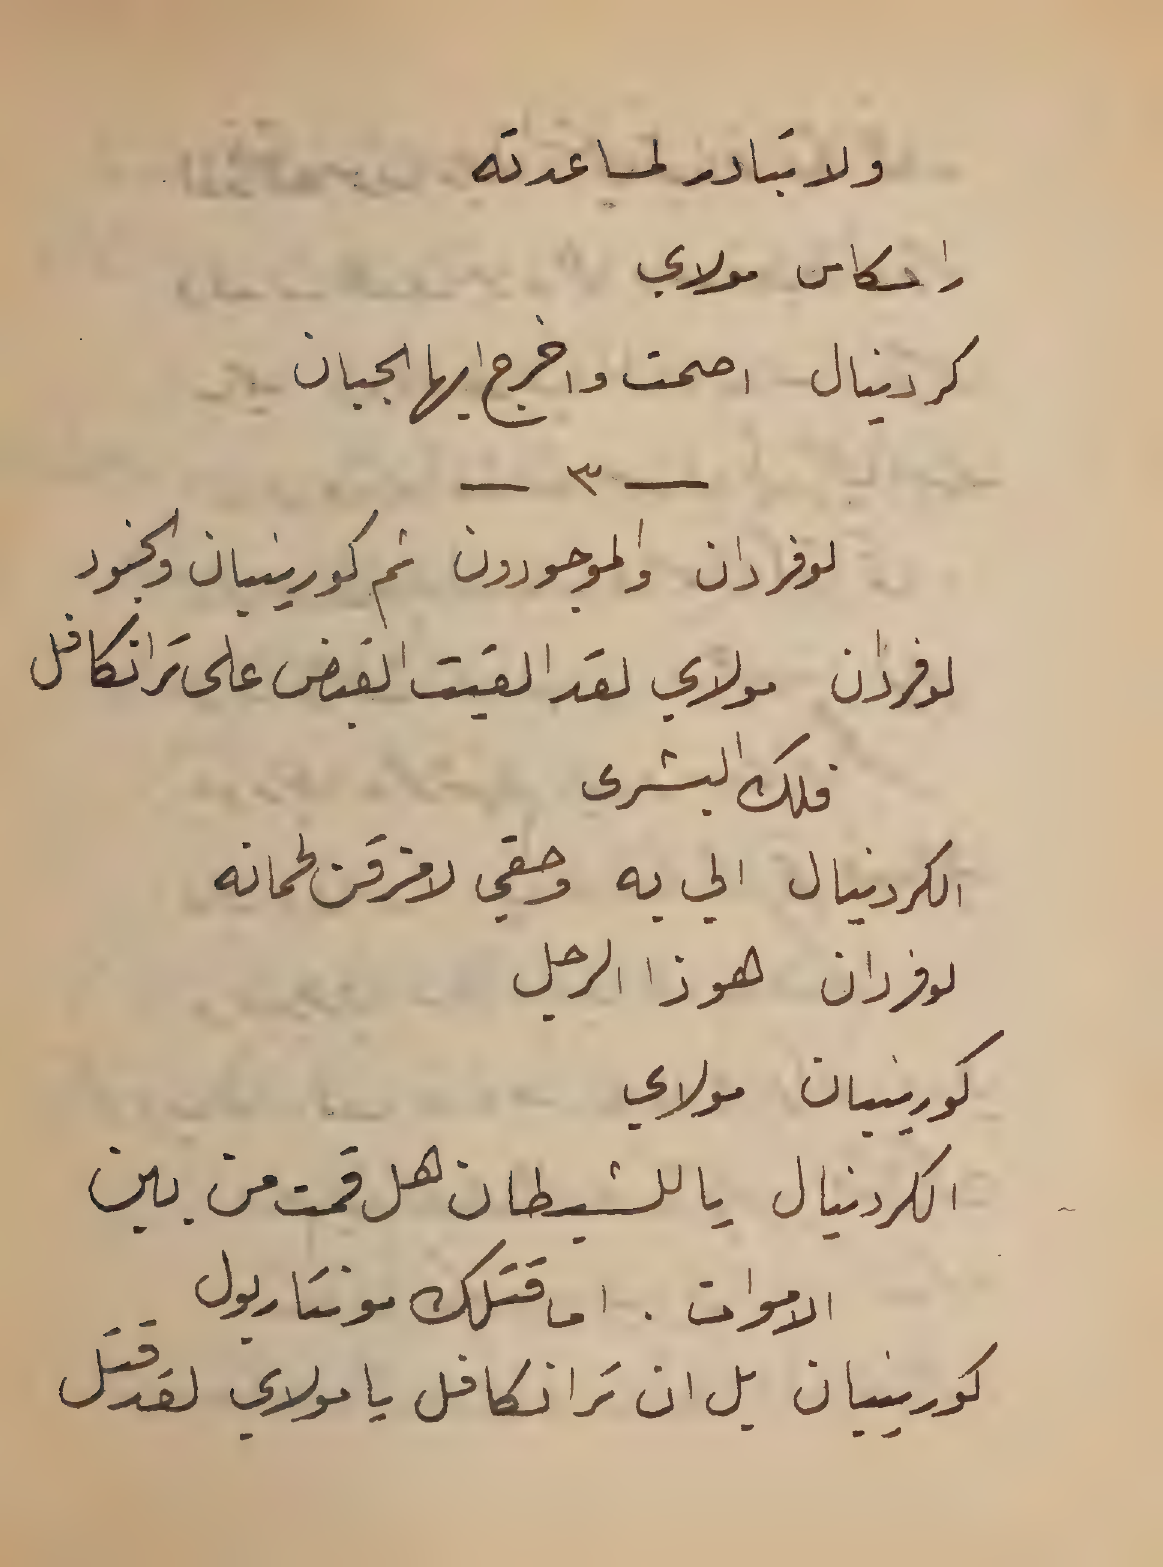 ولا تبادر لمساعدته
راحكاس مولاي
كردينال اصمت واخرج ايها الجبان
— ٣ —
لوفردان والموجودون ثم كورينيان والجنود
لوفردان مولاي لقد القيت القبض على ترانكافل
فلك البشرى
الكردينال الي به وحقي لامزقن لحمانه
لوفردان هوذا الرجل
كورينيان مولاي
الكردينال يا للشيطان هل قمت من بين
الاموات . اما قتلك مونتاريول
كورينيان بل ان ترانكافل يا مولاي لقد قتل